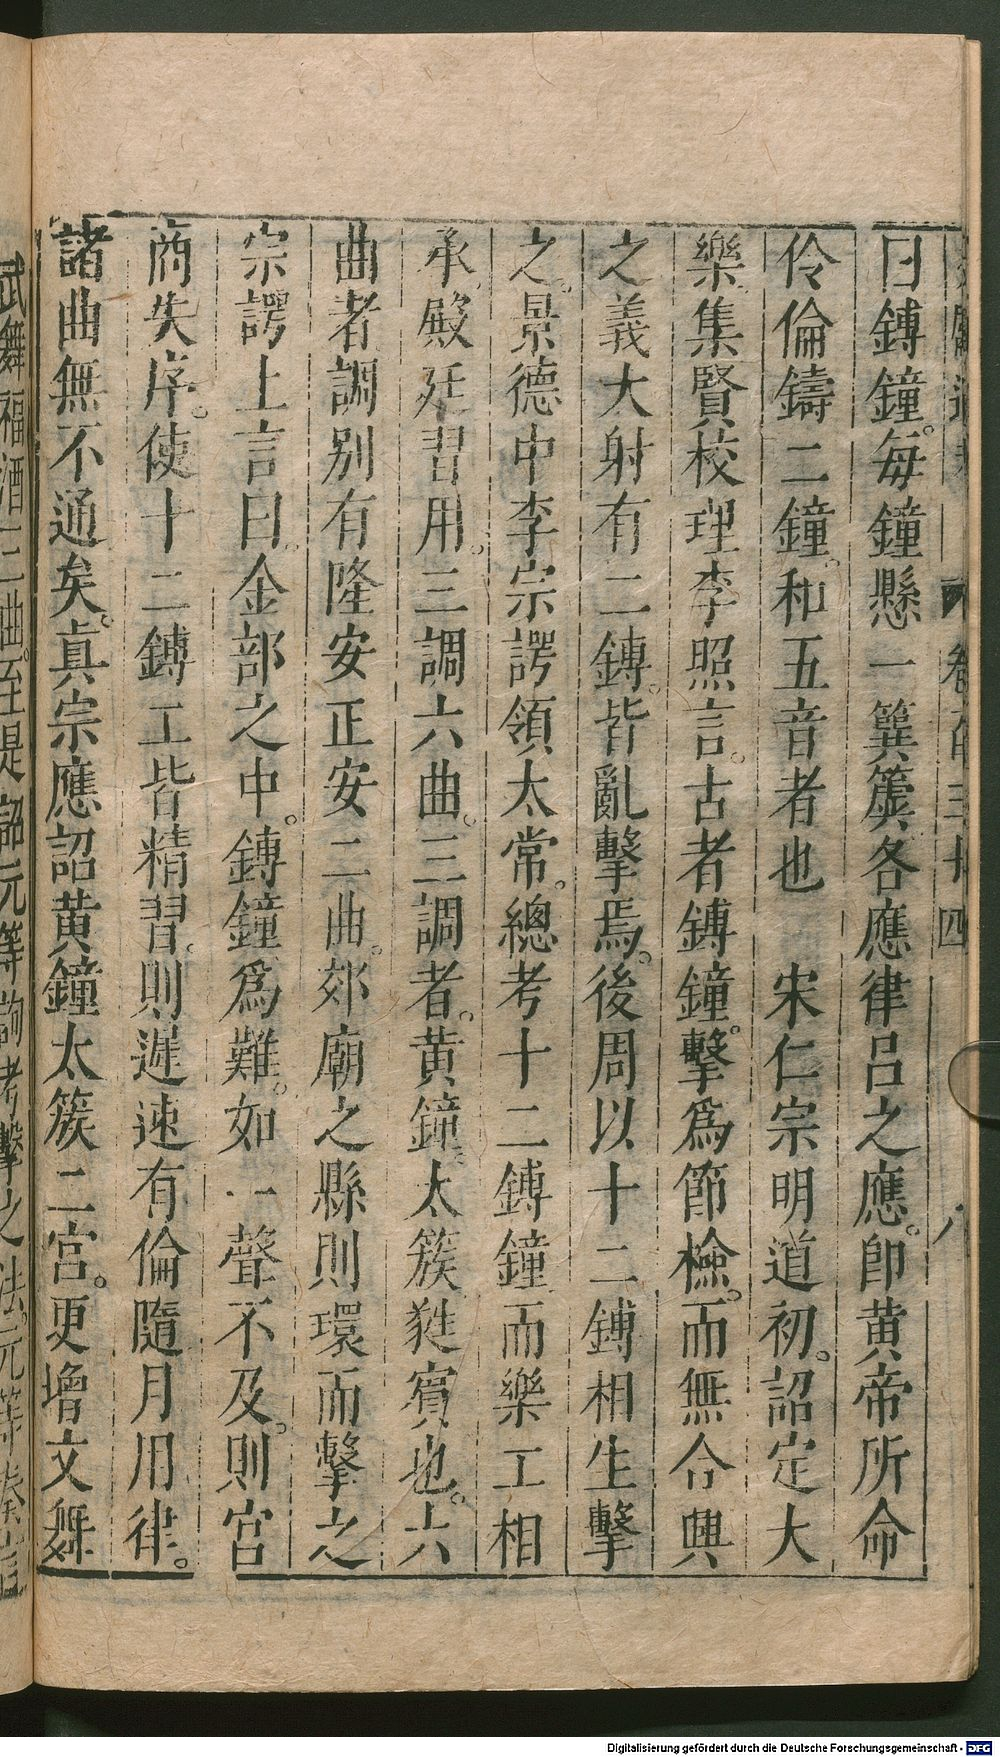 文獻通考 卷一百三十四 八
曰鎛鐘。每鐘懸一簨簴各應律呂之應。卽黃帝所命
伶倫鑄二鐘。和五音者也 宋仁宗明道初。詔定大
樂集賢校理李照言。古者鎛鐘。擊爲節檢。而無合興
之義大射有二鎛。皆亂擊焉。後周以十二鎛相生擊
之。景德中李宗諤領太常。總考十二鎛鐘而樂工相
承。殿廷習用。三調六曲。三調者。黃鐘太簇蕤賓也。六
曲者調别有隆安正安二曲。郊廟之縣則環而擊之
宗諤上言曰。金部之中。鎛鐘爲難。如一聲不及。則宮
商失序。使十二鎛工皆精習。則遲速有倫隨月用律。
諸曲無不通矣。真宗應詔黃鐘太簇二宮。更增文舞
武舞福酒三曲。至是詔元等詢考擊之法。元等奏言
Digitalisierung gefördert durch die Deutsche Forschungsgemeinschaft - DFG